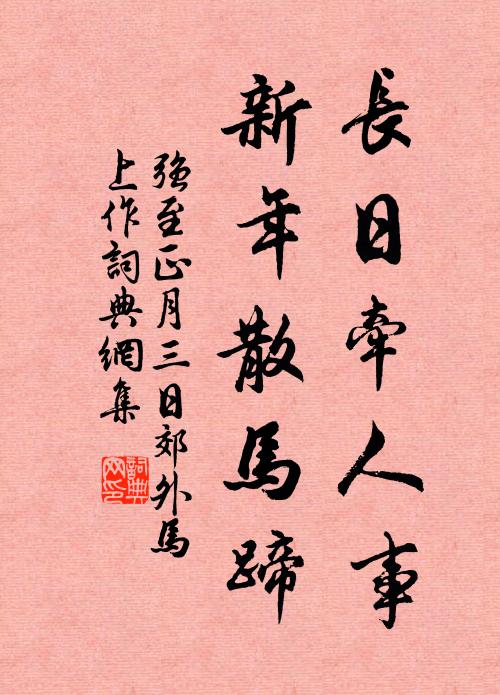 長日牽人事
新年散馬蹄
強至正月三日郊外馬
上作詞典網集
詞典
网印